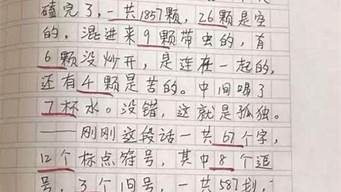 嗑完了，一共1857颗，26颗是空
的，混进来9颗带虫的，有
6颗没炒开，是连在一起的，
还有4颗是苦的。中间喝了
7杯水。没错，这就是孤独。
——刚刚这段话一共67个字，
12个标点符号，其中8个逗
号，3个句号，一共587划，